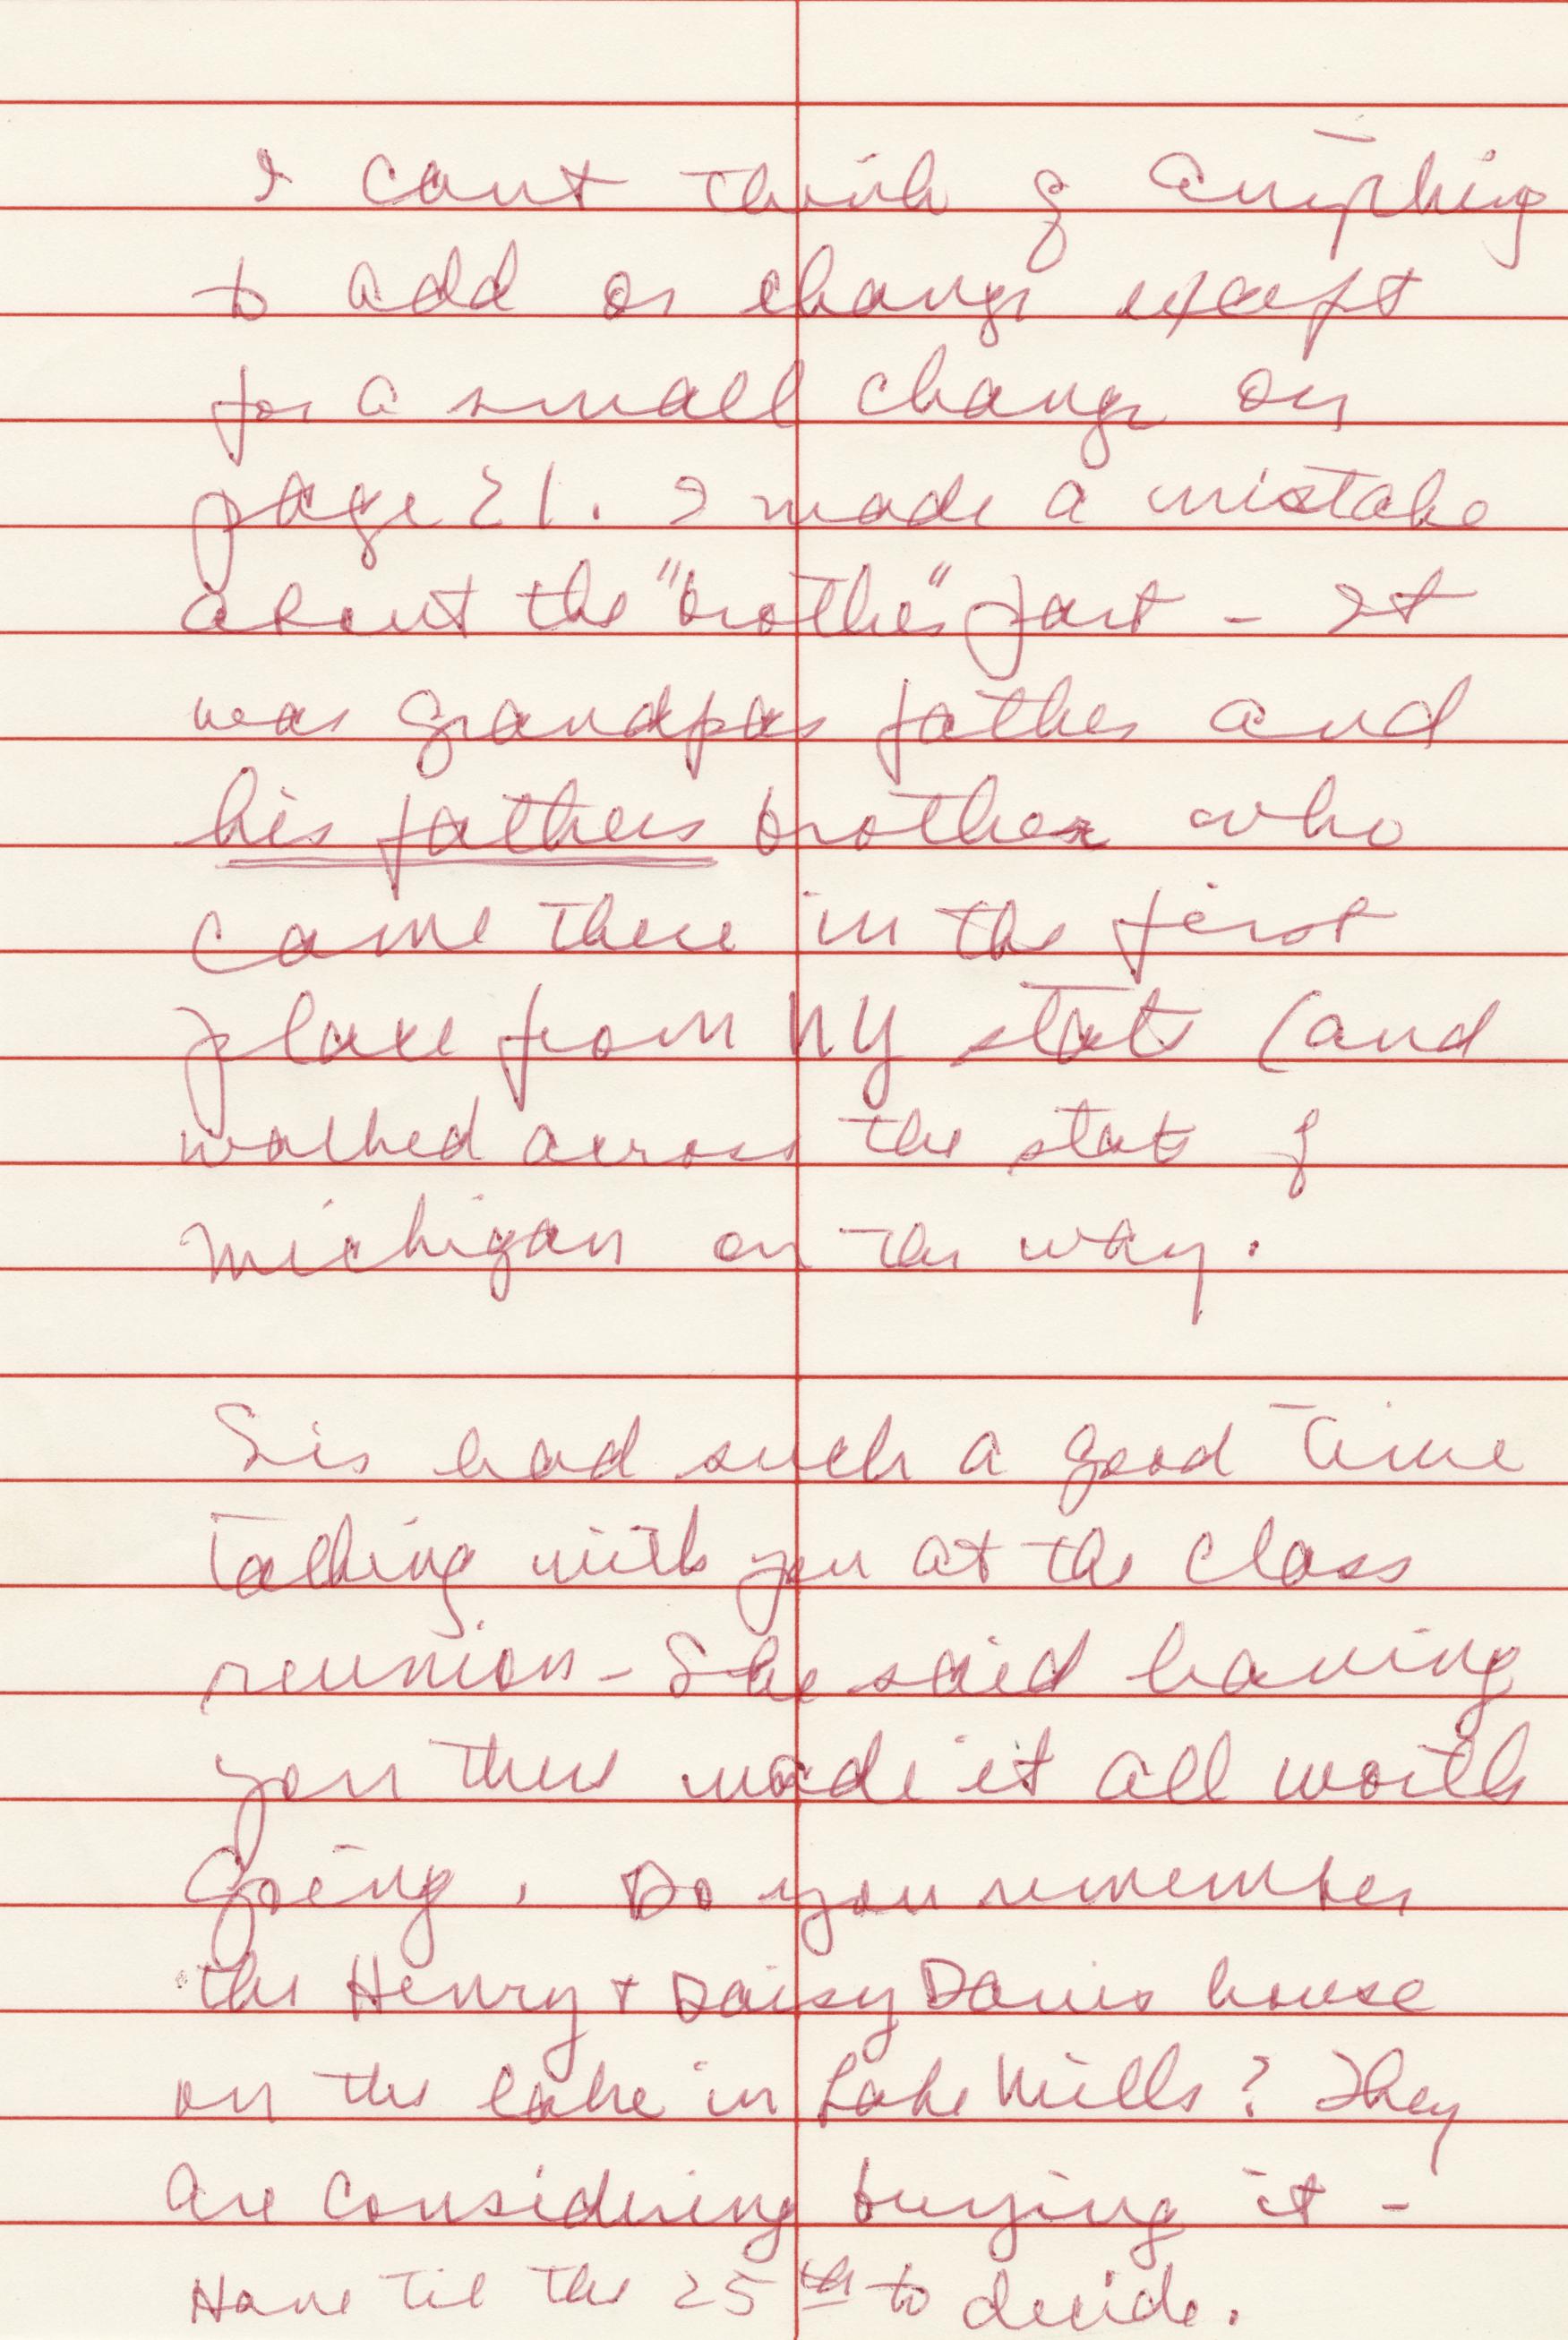 I cant think of anything
to add or change except
for a small change on
page 21. I made a mistake
about the "brother" part - It
was grandpas father and
his fathers brother who
came there in the first
place from NY state (and
walked across the state of
Michigan on the way.
Sis had such a good time
talking with you at the class
reunion - She said having
you there made it all worth
going. Do you remember
the Henry + Daisy Davis house
on the lake in Lake Mills? They
are considering buying it -
Have til the 25th to decide.